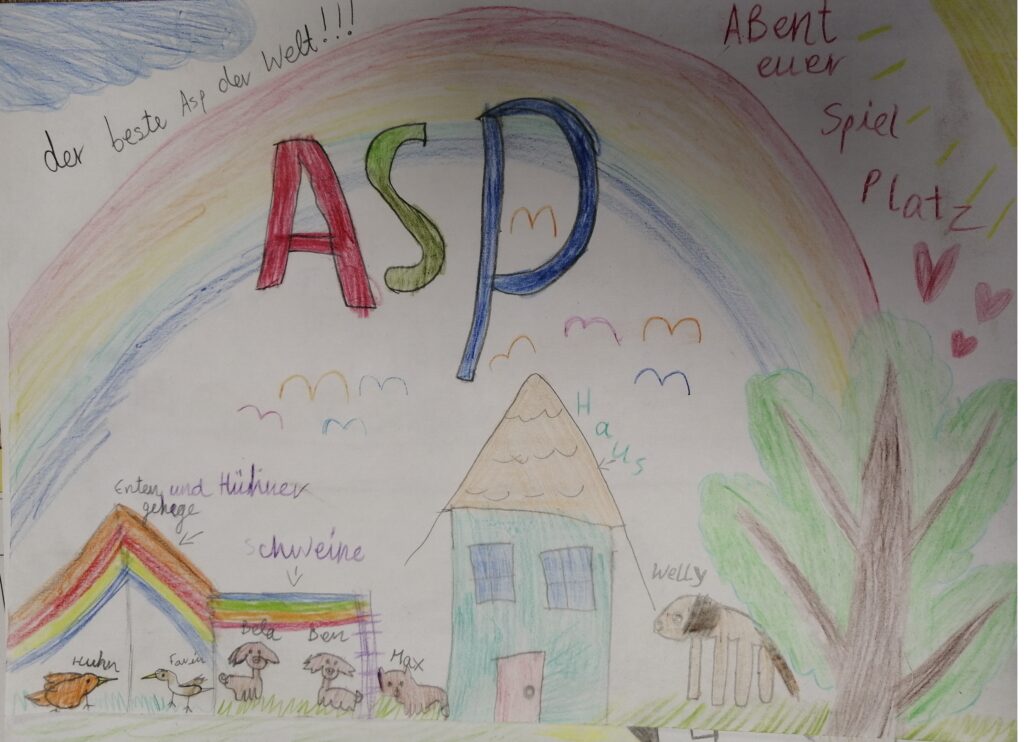 der beste Asp der Welt!!!
ABent
euer
Spiel
Platz
ASP
Haus
Enten und Hühner
gehege
Schweine
Welly
Huhn
Bela
Ben
Max